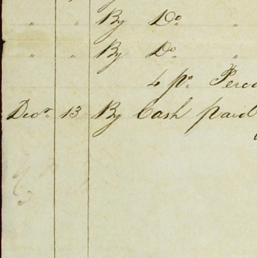 " " By Do "
" " By Do "
4 ps
Decr 13 By Cash paid